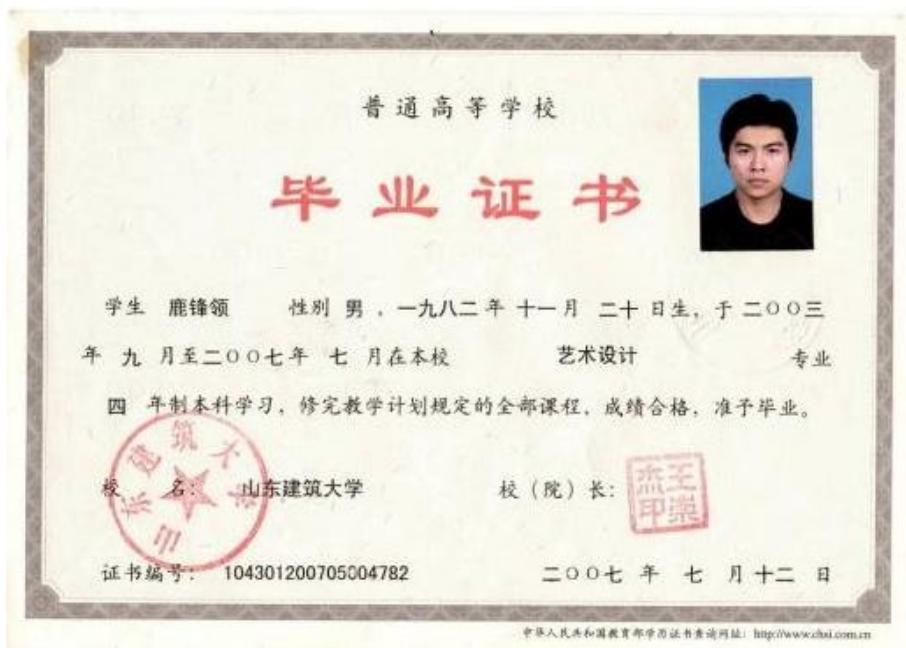 普通高等学校
毕业证书
学生 鹿锋领 性别 男 ，一九八二 年 十一月 二十 日生，于 二〇〇三
年 九 月至二〇〇七年 七 月在本校 艺术设计 专业
四 年制本科学习，修完教学计划规定的全部课程，成绩合格，准予毕业。
山东建筑大学
校 名： 山东建筑大学 校（院）长：
王崇杰印
证书编号： 104301200705004782 二〇〇七 年 七 月 十二 日
中华人民共和国教育部学历证书查询网址：http://www.chsi.com.cn